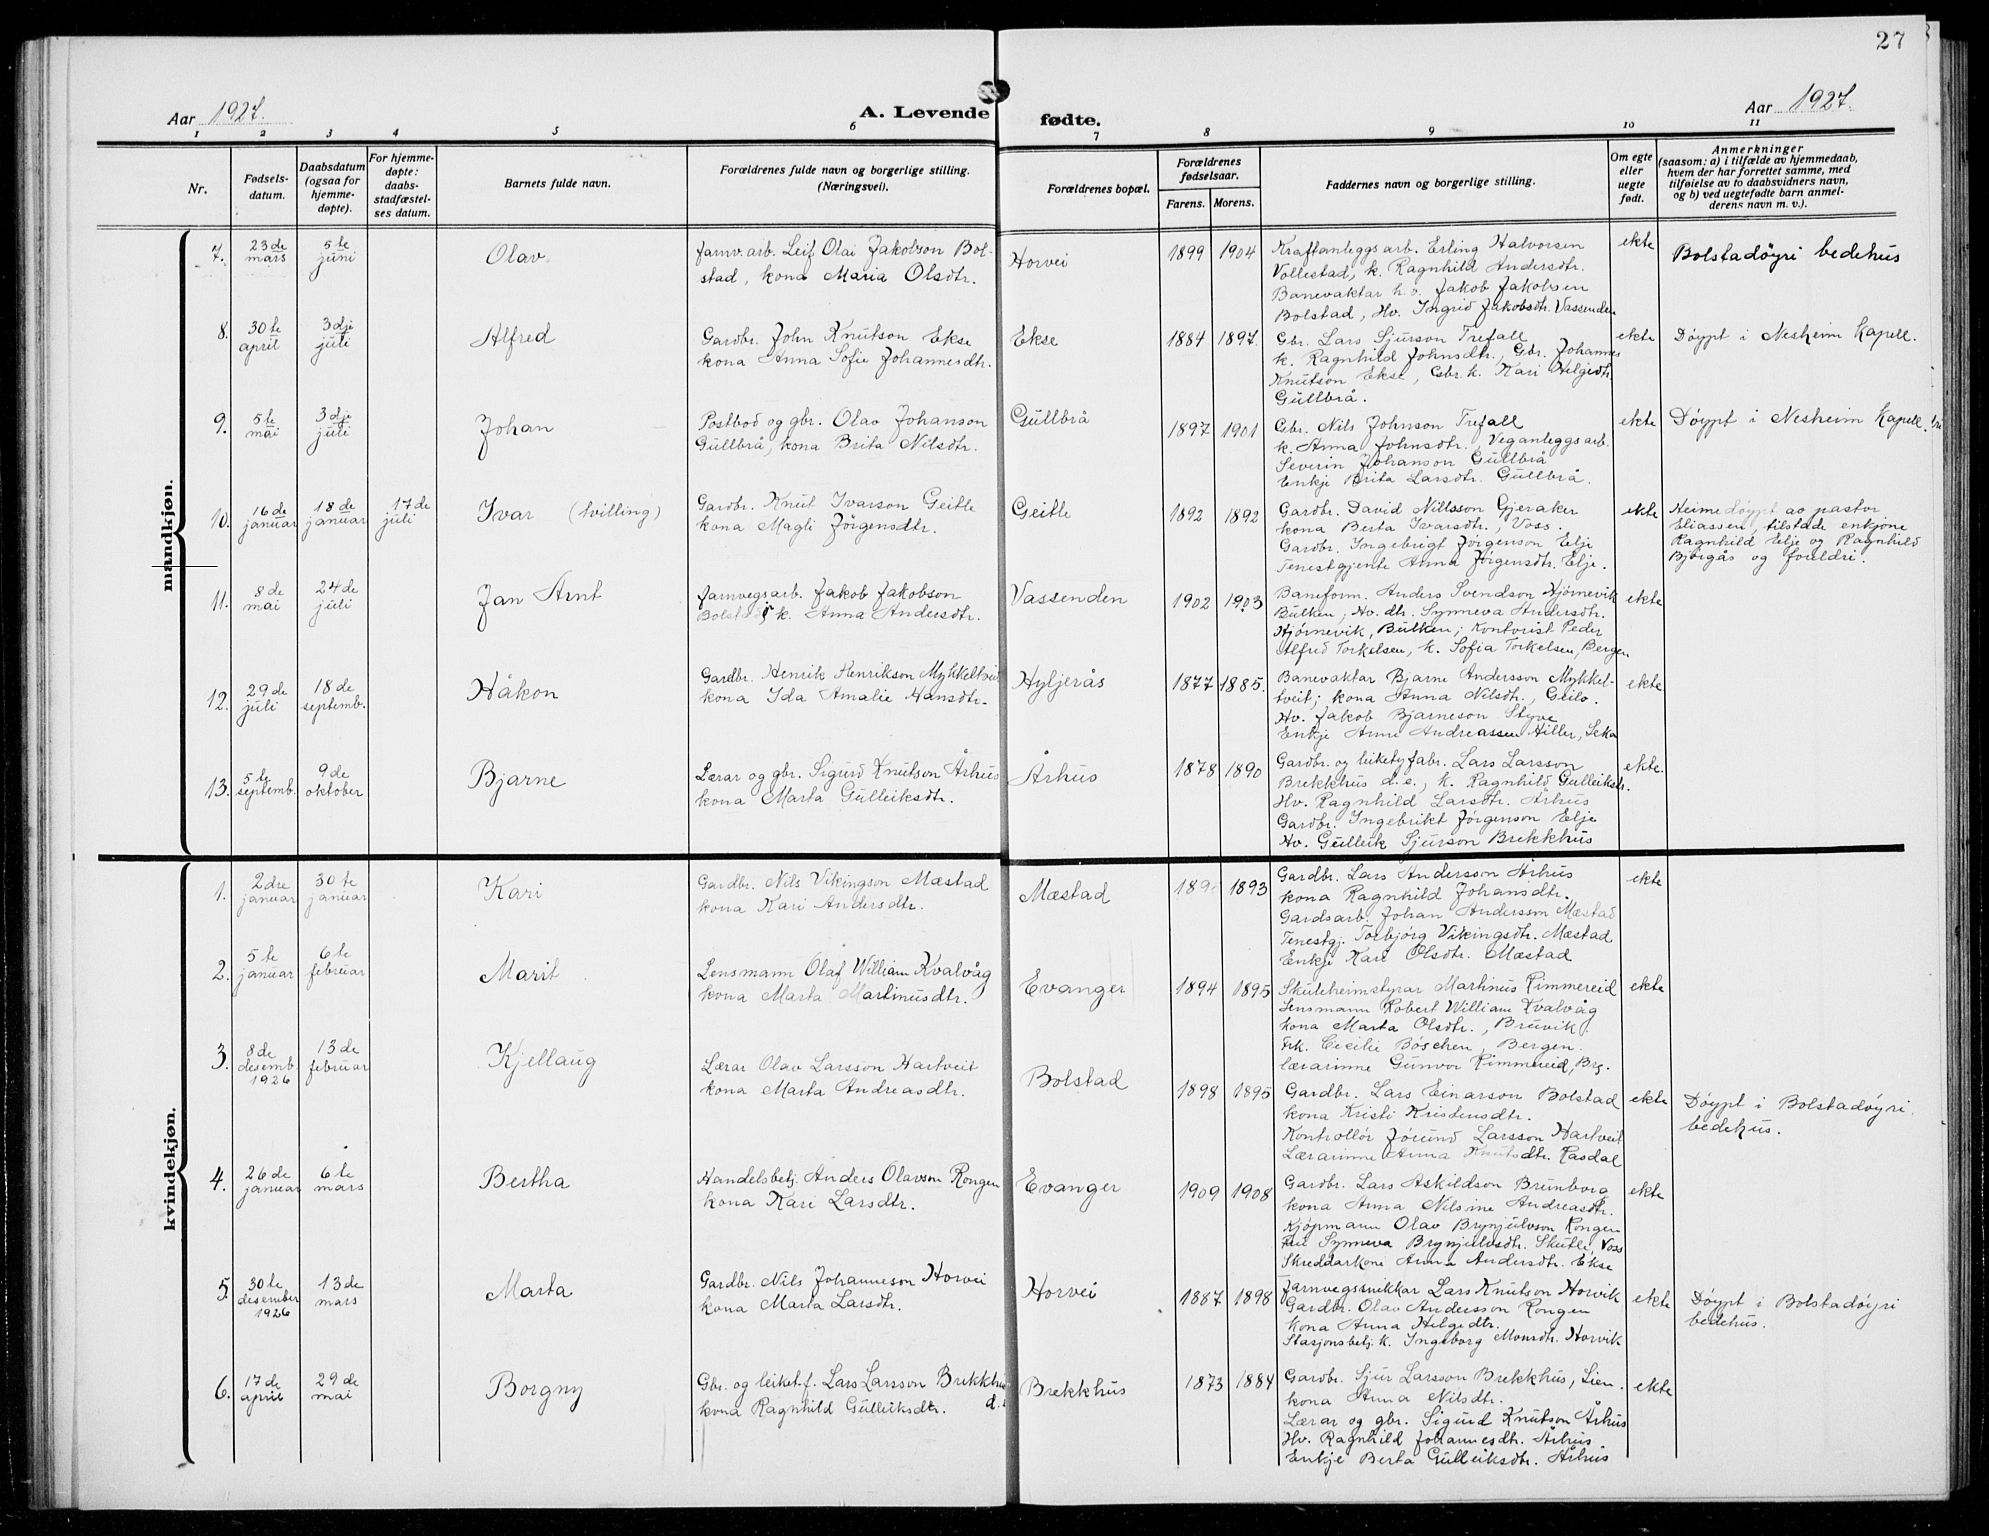 27
Aar 1927.
A. Levende fødte.
Aar 1927.
1 2 3 4 5 6 7 8 9 10 11
Nr.
Fødsels-
datum.
Daabsdatum
(ogsaa for
hjemme-
døpte).
For hjemme-
døpte:
daabs-
stadfæstel-
ses datum.
Barnets fulde navn.
Forældrenes fulde navn og borgerlige stilling.
(Næringsvei).
Forældrenes bopæl.
Forældrenes
fødselsaar.
Farens. Morens.
Faddernes navn og borgerlige stilling.
Om egte
eller
uegte
født.
Anmerkninger
(saasom: a) i tilfælde av hjemmedaab,
hvem der har forrettet samme, med
tilføielse av to daabsvidners navn,
og b) ved uegtefødte barn anmel-
derens navn m. v.).
mandkjøn.
7.
23 de
mars
5 te
juni
Olav
Jarnv. arb. Leif Olai Jakobson Bol-
stad, kona Maria Olsdtr.
Horvei
1899 1904
Kraftanleggsarb. Erling Halvorsen
Vollestad, k. Ragnhild Andersdtr.
Banevaktar Jakob Jakobsen
Bolstad, Hv. Ingrid Jakobsdtr. Vassenden
ekte
Bolstadöyri bedehus
8.
30 te
april
3 dje
juli
Alfred
Gardbr. John Knutson Ekse
kona Anna Sofie Johannesdtr.
Ekse
1884 1897.
Gbr. Lars Sjurson Trefall
k. Ragnhild Johnsdtr., Gbr. Johannes
Knutson Ekse, Gbr. k. Kari Helgedtr.
Gullbrå.
ekte
Döypt i Nesheim Kapell.
9.
5 te
mai
3 dje
juli
Johan
Postbod og gbr. Olav Johanson
Gullbrå, kona Brita Nilsdtr.
Gullbrå
1897 1901
Gbr. Nils Johnson Trefall
k. Anna Johnsdtr., Veganleggsarb.
Severin Johanson Gullbrå
Enkje Brita Larsdtr. Gullbrå.
ekte
Döypt i Nesheim Kapell.
10.
16 de
januar
18 de
januar
17 de
juli
Ivar (tvilling)
Gardbr. Knut Ivarson Geitle
kona Magli Jörgensdtr.
Geitle
1892 1892
Gardbr. David Nillsson Gjeraker
kona Berta Ivarsdtr., Voss.
Gardbr. Ingebrigt Jörgenson Elje
Tenestgjente Anna Jörgensdtr. Elje.
ekte
Heimedöypt av pastor
Eliassen, tilstade enkjone
Ragnhild Elje og Ragnhild
Björgås og foreldri.
11.
8 de
mai
24 de
juli
Jan Arnt
Jarnvegsarb. Jakob Jakobson
Bolstad, k. Anna Andersdtr.
Vassenden
1902 1903
Baneform. Anders Svendson Hjörnevik
Bulken, Hv. dtr. Synneva Andersdtr.
Hjörnevik, Bulken; Kontorist Peder
Alfred Torkelsen, k. Sofia Torkelsen, Bergen
ekte
12.
29 de
juli
18 de
septemb.
Håkon
Gardbr. Henrik Henrikson Mykkeltveit
kona Ida Amalie Hansdtr.
Hyljerås
1877 1885.
Banevaktar Bjarne Andersson Mykkel-
tveit; kona Anna Nilsdtr., Geilo.
Hv. Jakob Bjarneson Styve
Enkje Anne Andreassen Hiller,
ekte
13.
5 te
septemb.
9 de
oktober
Bjarne
Lærar og gbr. Sigurd Knutson Århus
kona Marta Gulleiksdtr.
Århus
1878 1890
Gardbr. og leiketyfabr. Lars Larsson
Brekkhus d.e., k. Ragnhild Gulleiksdr.
Hv. Ragnhild Larsdtr. Århus
Gardbr. Ingebrikt Jörgenson Elje
Hv. Gulleik Sjurson Brekkhus
ekte.
kvindekjøn.
1.
2 dre
januar
30 te
januar
Kari
Gardbr. Nils Vikingson Mæstad
kona Kari Andersdtr.
Mæstad
1893
Gardbr. Lars Andersson Århus
kona Ragnhild Johansdtr.
Gardsarb. Johan Andersson Mæstad
Tenestgj. Torbjörg Vikingsdtr. Mæstad
Enkje Kari Olsdtr. Mæstad
ekte
2.
5 te
januar
6 te
februar
Marit
Lensmann Olaf William Kvalvåg
kona Marta Martinusdtr.
Evanger
1894 1895
Skuleheimstyrar Martinus Rimmereid
Lensmann Robert William Kvalvåg
kona Marta Olsdtr., Bruvik
Frk. Cecilie Böschen, Bergen.
Lærarinne Gunvor Rimmereid, Brg.
ekte
3.
8 de
desemb.
1926
13 de
februar
Kjellaug
Lærar Olav Larsson Hartveit
kona Marta Andreasdtr.
Bolstad
1898 1895
Gardbr. Lars Einarson Bolstad
kona Kristi Kristensdtr.
Kontrollör Jörund Larsson Hartveit
Lærarinne Anna Knutsdtr. Rasdal
ekte
Döypt i Bolstadöyri
bedehus.
4.
26 de
januar
6 te
mars
Bertha
Handelsbetj. Anders Olavson Rongen
kona Kari Larsdtr.
Evanger
1909 1908
Gardbr. Lars Askildson Brunborg
kona Anna Nilsine Andreasdtr.
Kjöpmann Olav Brynjulvson Rongen
Synneva Brynjulvsdtr. Skutle, Voss
Skreddarkone Anna Andersdtr. Ekse
ekte
5.
30 te
desember
1926
13 de
mars
Marta
Gardbr. Nils Johanneson Horvei
kona Marta Larsdtr.
Horvei
1887 1898
Jarnvegssnikkar Lars Knutson Horvik
Gardbr. Olav Andersson Rongen
kona Anna Helgedtr.
Stasjonsbetj. k. Ingeborg Monsdtr. Horvik
ekte
Döypt i Bolstadöyri
bedehus.
6.
17 de
april
29 de
mai
Borgny
Gbr. og leiket.f. Lars Larsson Brekkhus
kona Ragnhild Gulleiksdtr. d.
Brekkhus
1873 1884
Gardbr. Sjur Larsson Brekkhus, Lien.
kona Anna Nilsdtr.
Lærar og gbr. Sigurd Knutson Århus
Hv. Ragnhild Johannesdtr. Århus
Enkje Berta Gulleiksdtr. Århus
ekte